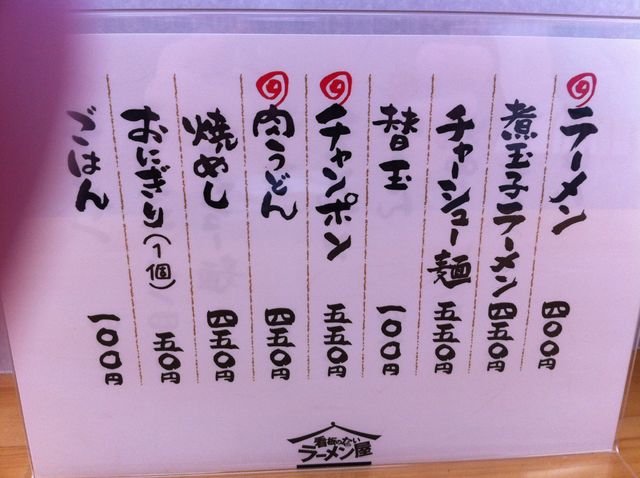 ラーメン 四〇〇円
煮玉子ラーメン 四五〇円
チャーシュー麺 五五〇円
替玉 一〇〇円
チャンポン 五五〇円
肉うどん 四五〇円
焼めし 四五〇円
おにぎり(1個) 五〇円
ごはん 一〇〇円
看板のない
ラーメン屋